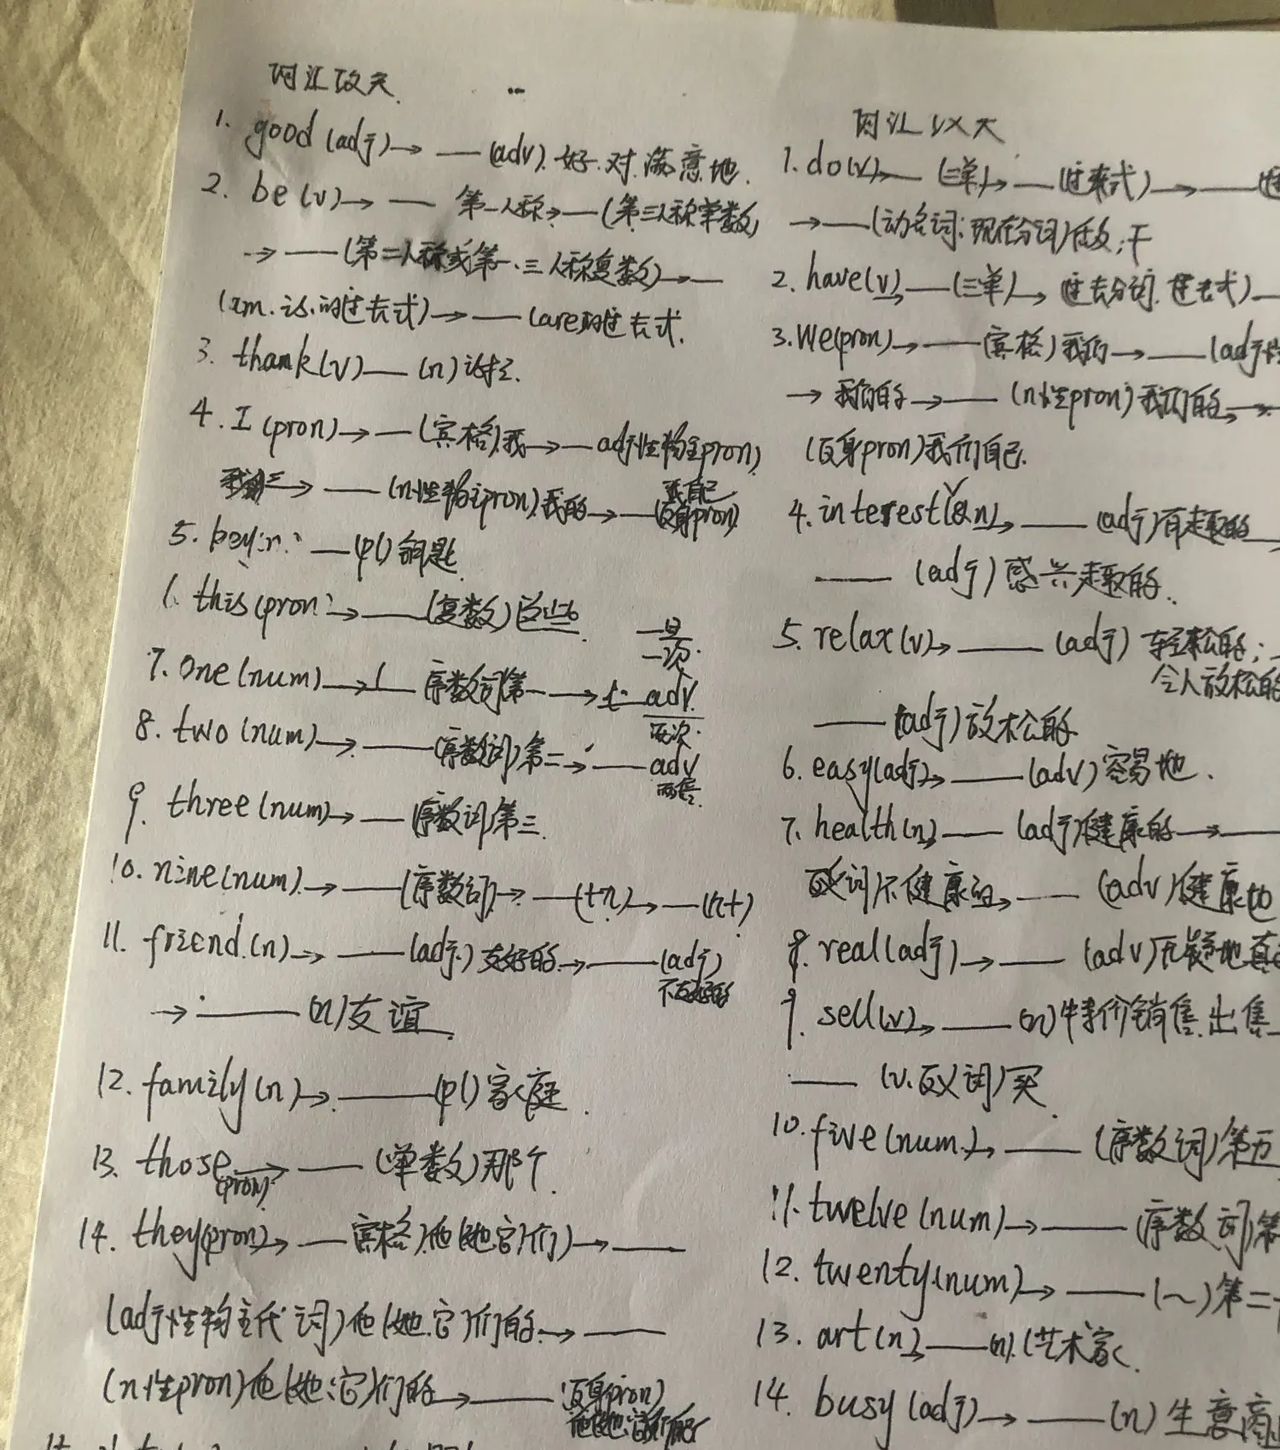 1. good (adj)→ — (adv). 好.对.满意地.
2. be(v)→ — 第一人称→—(第三人称单数)
→ —(第二人称或第一、三人称复数)→—
(am. is.的过去式)→ — (are的过去式.
3. thank(v) — (n)
4. I (pron)→ —(宾格)我→— adj性物主pron)
→ — (n性物主pron)我的→ — (反身pron) 我自己
5. — (pl)钥匙
6. this(pron →—(复数)这些
7. one(num)→ — 序数词第一→ — adv. 一次.
8. two(num)→ —(序数词)第二→ — adv 两次. 两倍.
9. three(num)→ — 序数词第三.
10. nine(num).→ —(序数词)→ —(+n)→ —(n+)
11. friend.(n)→ —(adj.)友好的→ —(adj) 不友好的
→ — (n)友谊
12. family(n)→ —(pl)家庭
13. those(pron)→ —(单数)那个.
14. they(pron)→ —宾格)他(她它)们)→ —
(adj性物主代词)他(她.它)们的→ —
(n性pron)他(她.它)们的→ —(反身pron)
词汇
1. do(v)→ —(三单)→ —(过去式)→ —
→ —(动名词;现在分词)做;干
2. have(v)→ —(三单)→ 过去分词.过去式)—
3. we(pron)→ —(宾格)我们→ —(adj性
→ 我们的→ —(n性pron)我们的→
(反身pron)我们自己.
4. interest(v&n)→ —(adj)有趣的
—(adj)感兴趣的.
5. relax(v)→ —(adj) 轻松的; 令人放松的
—(adj)放松的
6. easy(adj)→ —(adv)容易地.
7. health(n)→ —(adj)健康的→—
反义词)不健康的→ —(adv)健康地
8. real(adj)→ —(adv)无疑地
9. sell(v)→ —(n)特价销售.出售
—(v.反义词)买
10. five(num.)→ —(序数词)第五
11. twelve(num)→ —(序数词)第
12. twenty(num)→ —(~)第二
13. art(n)→ —(n).(艺术家.
14. busy(adj)→ —(n)生意